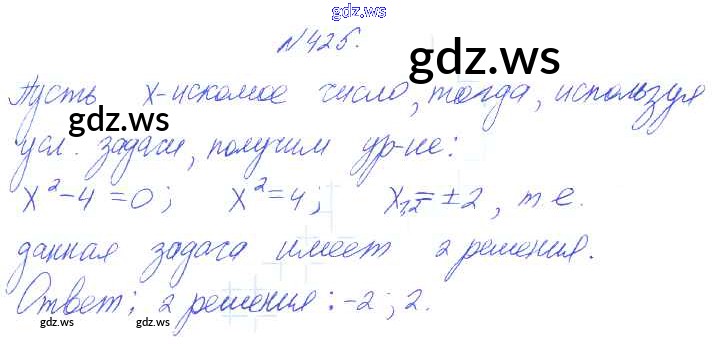 gdz.ws
№425.
gdz.ws
Пусть x-искомое число, тогда, используя
gdz.ws
усл. задачи, получим ур-ие:
x²-4=0; x²=4; x₁,₂=±2, т.е.
данная задача имеет 2 решения.
Ответ: 2 решения: -2; 2.
gdz.ws
gdz.ws